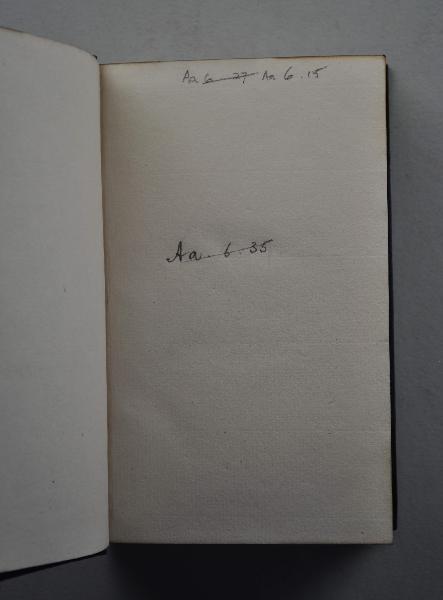 Aa 6 27 Aa 6.15
Aa. 6.35